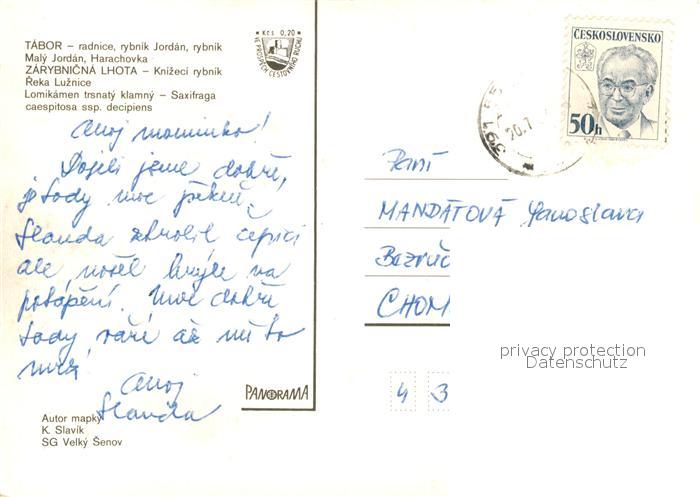 TÁBOR – radnice, rybník Jordán, rybník
Malý Jordán, Harachovka
ZÁRYBNIČNÁ LHOTA – Knížecí rybník
Řeka Lužnice
Lomikámen trsnatý klamný – Saxifraga
caespitosa ssp. decipiens
Kčs 0,20
VE PROSPĚCH CESTOVNÍHO RUCHU
ČESKOSLOVENSKO
50h
391 55
20.7
Ahoj maminko!
Dojeli jsme dobře,
je tady moc pěkně.
Standa ztratil čepici
ale našel brýle na
potápění. Moc dobře
tady vaří až mi to
Ahoj
Standa
Paní
MANDÁTOVÁ Jaroslava
Bezruč
CHOM
4 3
PANORAMA
Autor mapky
K. Slavík
SG Velký Šenov
privacy protection
Datenschutz